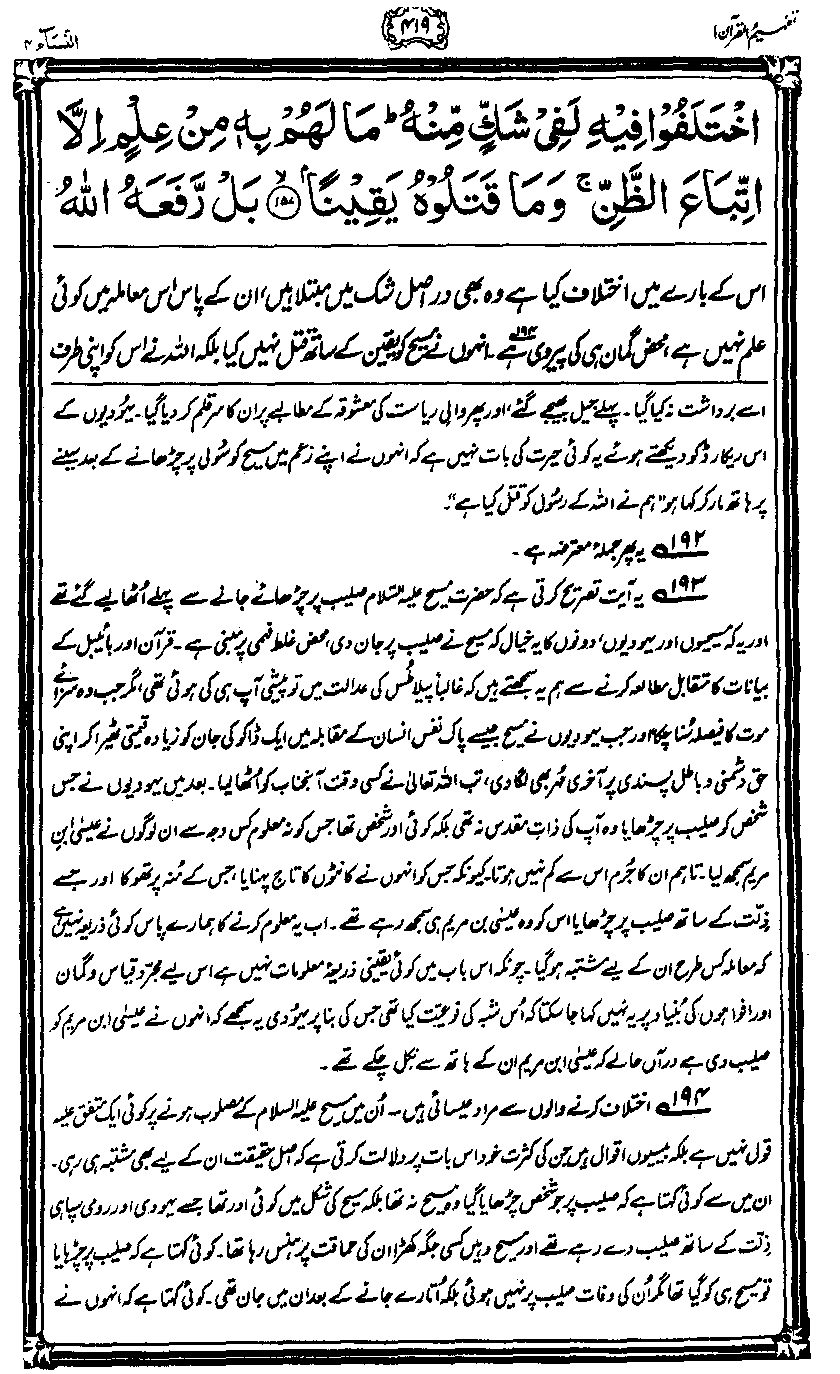 تفہیم القرآن ۱
۴۱۹
النساء ۴
اخْتَلَفُوْا فِيْهِ لَفِيْ شَكٍّ مِّنْهُ ؕ مَا لَهُمْ بِهٖ مِنْ عِلْمٍ اِلَّا
اتِّبَاعَ الظَّنِّ ۚ وَمَا قَتَلُوْهُ يَقِيْنًۢا ۙ﴿۱۵۷﴾ بَلْ رَّفَعَهُ اللّٰهُ
اس کے بارے میں اختلاف کیا ہے وہ بھی دراصل شک میں مبتلا ہیں، ان کے پاس اس معاملہ میں کوئی
علم نہیں ہے، محض گمان ہی کی پیروی ہے۱۹۴۔ انہوں نے مسیح کو یقین کے ساتھ قتل نہیں کیا بلکہ اللہ نے اس کو اپنی طرف
اسے برداشت نہ کیا گیا۔ پہلے جیل بھیجے گئے، اور پھر والیِ ریاست کی معشوقہ کے مطالبے پر ان کا سر قلم کر دیا گیا۔ یہودیوں کے
اس ریکارڈ کو دیکھتے ہوئے یہ کوئی حیرت کی بات نہیں ہے کہ انہوں نے اپنے زعم میں مسیح کو سُولی پر چڑھانے کے بعد سینے
پر ہاتھ مار کر کہا ہو "ہم نے اللہ کے رسُول کو قتل کیا ہے"۔
۱۹۲؎ یہ پھر جملۂ معترضہ ہے۔
۱۹۳؎ یہ آیت تصریح کرتی ہے کہ حضرت مسیح علیہ السّلام صلیب پر چڑھائے جانے سے پہلے اُٹھا لیے گئے تھے
اور یہ کہ مسیحیوں اور یہودیوں، دونوں کا یہ خیال کہ مسیح نے صلیب پر جان دی، محض غلط فہمی پر مبنی ہے۔ قرآن اور بائیبل کے
بیانات کا متقابل مطالعہ کرنے سے ہم یہ سمجھتے ہیں کہ غالباً پیلاطُس کی عدالت میں تو پیشی آپ ہی کی ہوئی تھی، مگر جب وہ سزائے
موت کا فیصلہ سُنا چکا، اور جب یہودیوں نے مسیح جیسے پاک نفس انسان کے مقابلہ میں ایک ڈاکو کی جان کو زیادہ قیمتی ٹھیرا کر اپنی
حق دشمنی و باطل پسندی پر آخری مُہر بھی لگا دی، تب اللہ تعالیٰ نے کسی وقت آنجناب کو اُٹھا لیا۔ بعد میں یہودیوں نے جس
شخص کو صلیب پر چڑھایا وہ آپ کی ذاتِ مقدس نہ تھی بلکہ کوئی اور شخص تھا جس کو نہ معلوم کس وجہ سے ان لوگوں نے عیسیٰ ابن
مریم سمجھ لیا۔ تاہم ان کا جُرم اس سے کم نہیں ہوتا۔ کیونکہ جس کو انہوں نے کانٹوں کا تاج پہنایا، جس کے مُنہ پر تھوکا اور جسے
ذِلّت کے ساتھ صلیب پر چڑھایا اس کو وہ عیسیٰ بن مریم ہی سمجھ رہے تھے۔ اب یہ معلوم کرنے کا ہمارے پاس کوئی ذریعہ نہیں ہے
کہ معاملہ کس طرح ان کے لیے مشتبہ ہو گیا۔ چونکہ اس باب میں کوئی یقینی ذریعۂ معلومات نہیں ہے اس لیے مجرّد قیاس و گمان
اور افواہوں کی بُنیاد پر یہ نہیں کہا جا سکتا کہ اُس شبہ کی نوعیّت کیا تھی جس کی بنا پر یہُودی یہ سمجھے کہ انہوں نے عیسیٰ ابن مریم کو
صلیب دی ہے در آں حالے کہ عیسیٰ ابن مریم ان کے ہاتھ سے نکل چکے تھے۔
۱۹۴؎ اختلاف کرنے والوں سے مراد عیسائی ہیں۔ اُن میں مسیح علیہ السلام کے مصلوب ہونے پر کوئی ایک متفق علیہ
قول نہیں ہے بلکہ بیسیوں اقوال ہیں جن کی کثرت خود اس بات پر دلالت کرتی ہے کہ اصل حقیقت ان کے لیے بھی مشتبہ ہی رہی۔
ان میں سے کوئی کہتا ہے کہ صلیب پر جو شخص چڑھایا گیا وہ مسیح نہ تھا بلکہ مسیح کی شکل میں کوئی اور تھا جسے یہودی اور رومی سپاہی
ذِلّت کے ساتھ صلیب دے رہے تھے اور مسیح وہیں کسی جگہ کھڑا ان کی حماقت پر ہنس رہا تھا۔ کوئی کہتا ہے کہ صلیب پر چڑھایا
تو مسیح ہی کو گیا تھا مگر اُن کی وفات صلیب پر نہیں ہوئی بلکہ اُتارے جانے کے بعد ان میں جان تھی۔ کوئی کہتا ہے کہ انہوں نے